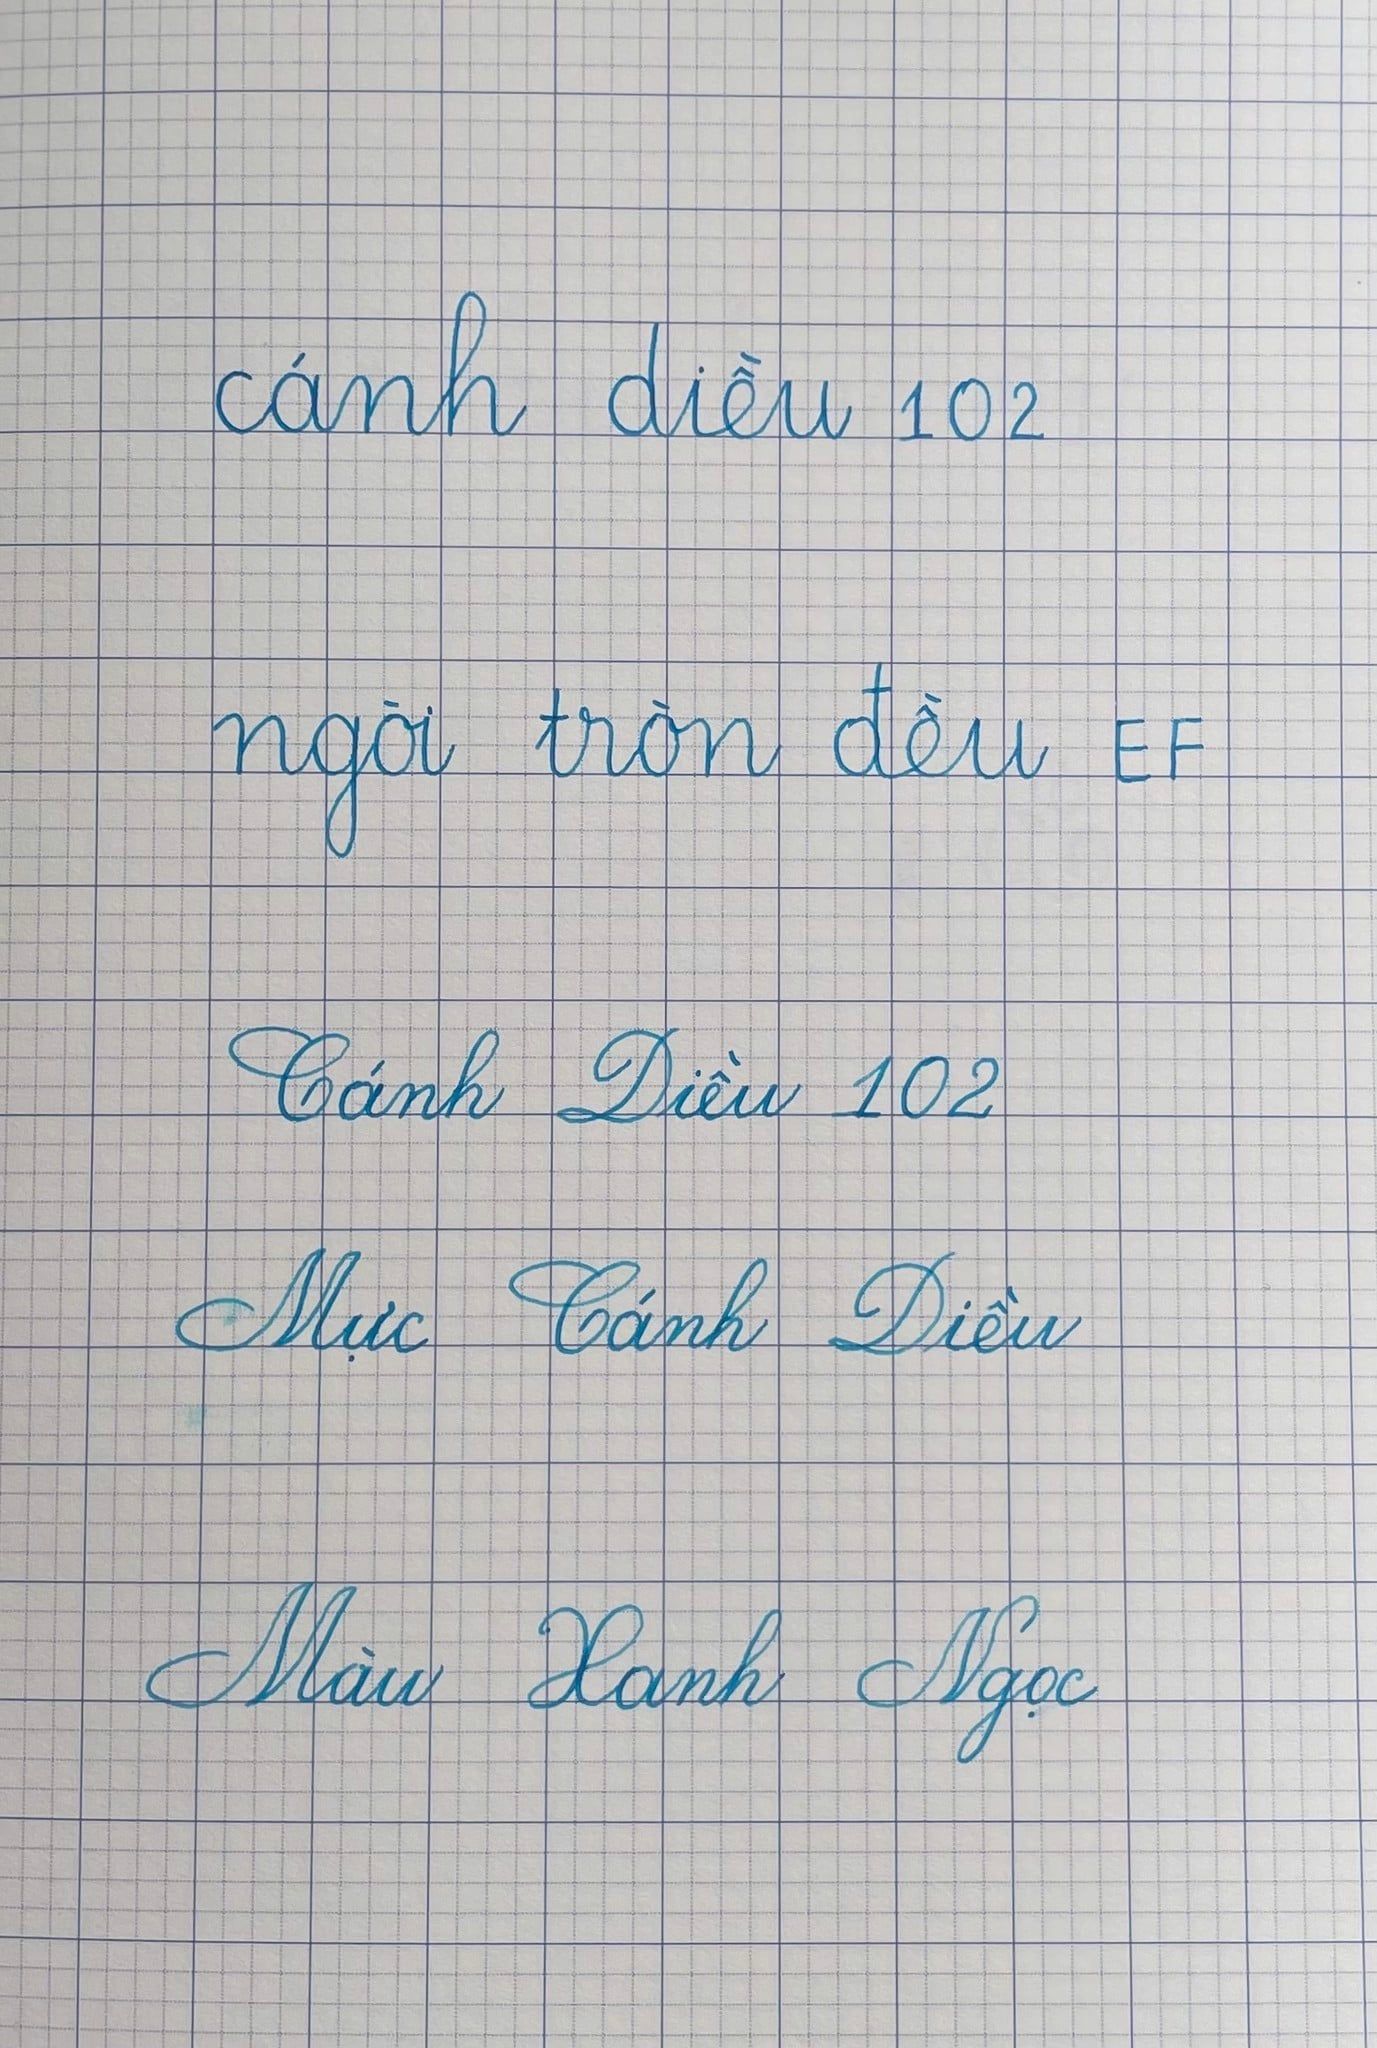 cánh diều 102
ngòi tròn đều EF
Cánh Diều 102
Mực Cánh Diều
Màu Xanh Ngọc